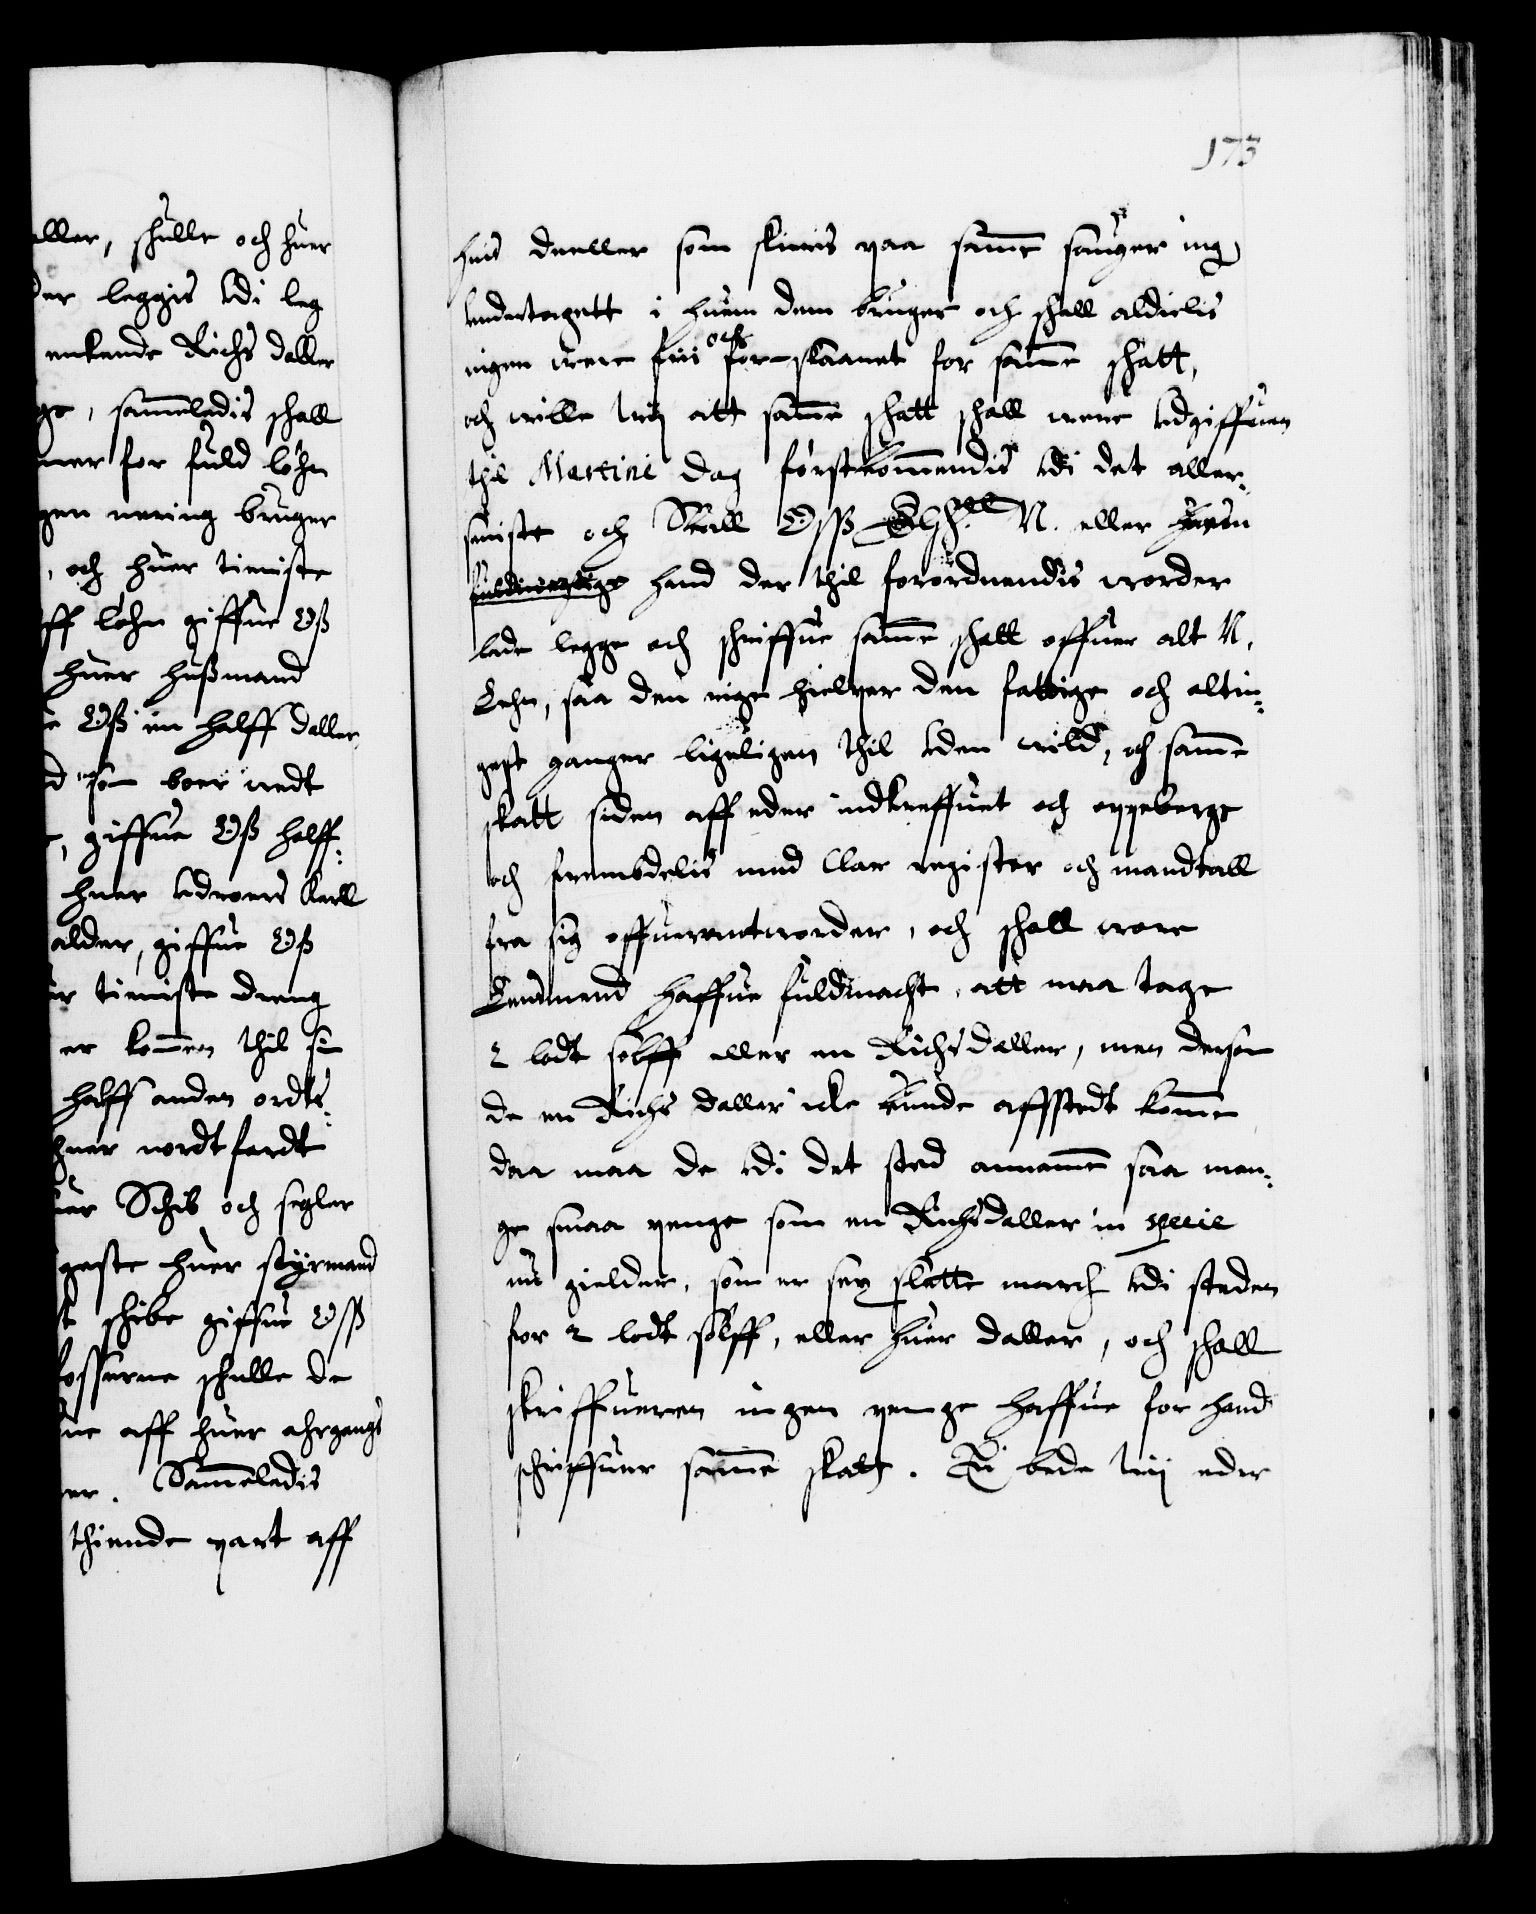 aller, schulle och huer
der leggis udi leg
enkende Richs daller
ge, sammeledis schall
mer for fuld løhn
gen nering bruger
, och huer tieniste
ff løhn giffue Oß
huer hußmand
e Oß en halff daller,
d som boer vedt
, giffue Oß halff-
huer udroers karll
alder, giffue Oß
r tieniste dreng
er kommen thil sin
halff anden ordts-
huer nordtfardt
uer Schib och segler
geste huer styrmand
t schibe giffue Oß
fosserne schulle de
ue aff huer ahrgangs
er. Sammeledis
thiende part aff
173
huis deeller som skiens paa samme sauger ing
undertagett i huem dem bruger och schall aldielis
ingen were frii och for-skaanet for samme schatt,
och wille wij att samme schatt schall were udgiffuen
thil Martini dag førstkommendis udi det aller-
seniste och Skall Oss Elsch. N. eller huem
fuldmegtige hand der thil forordnendis worder
lade legge och schriffue samme skatt offuer alt N.
Lehn, saa den rige hielper den fattige och altin-
gest ganger ligeligen thil uden wild, och samme
skatt siden aff eder indkreffuet och oppeberge
och frembdelis med klar register och mandtall
fra sig offuerantworder, och schall wore
Lendmend haffue fuldmacht, att maa tage
2 lodt sølff eller en Richsdaller, men dersom
de en Richs daller icke kunde affstedt komme
daa maa de udi det sted annamme saa man-
ge smaa penge som en Richsdaller in specie
nu gielder, som er sex slette march udi steden
for 2 lodt sølff, eller huer daller, och schall
skriffueren ingen penge haffue for hand
schriffuer samme skatt. Thi bede wij eder